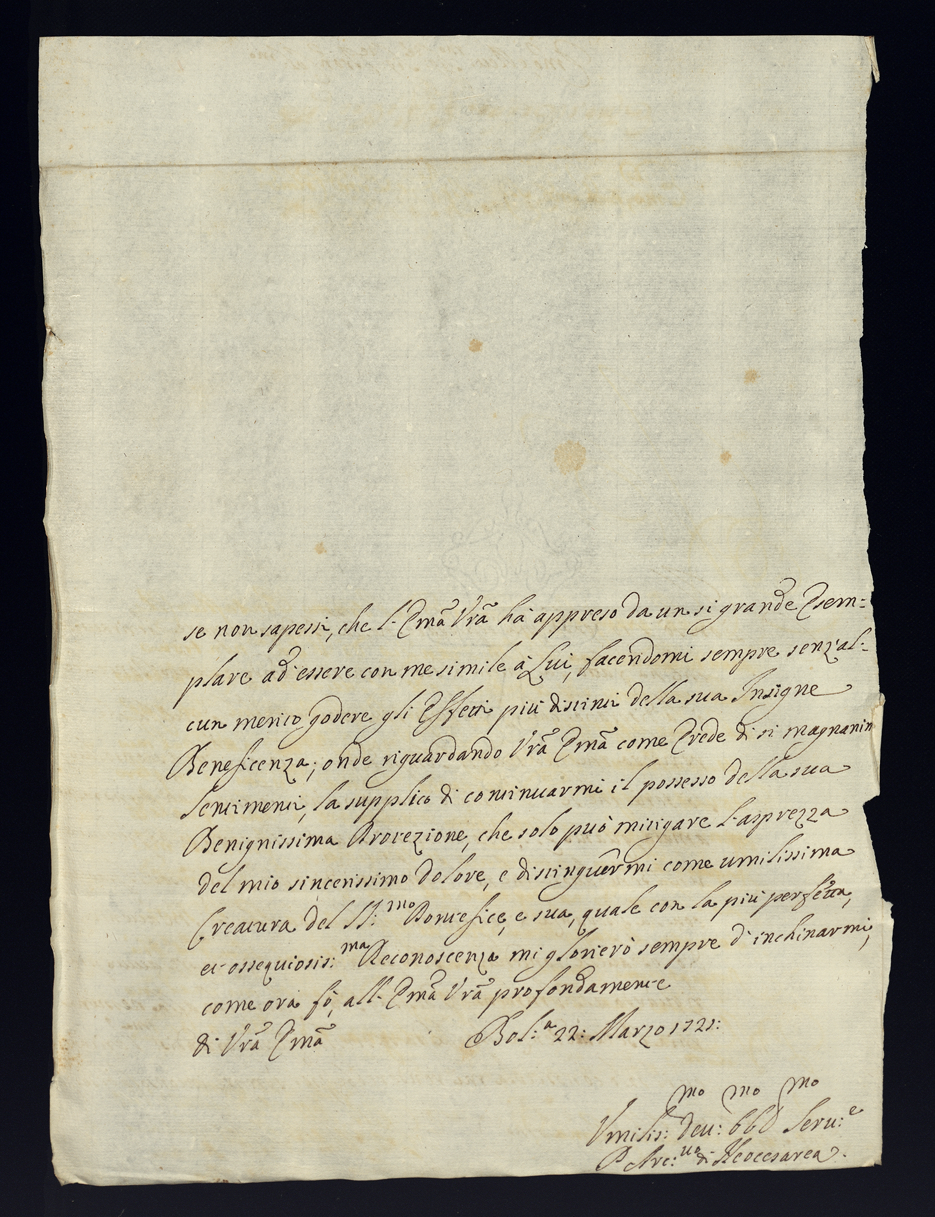 se non sapessi, che l'Em̃a Vrã hà appreso da un si grande Esem=
plare ad'essere con me simile à Lui, facendomi sempre senz'al=
cun merito godere gli Effetti più distinti della sua Insigne
Beneficenza; onde riguardando Vrã Em̃a come Erede di si magnanim
sentimenti, la supplico di continuarmi il possesso della sua
Benignissima Protezione, che solo può mitigare l'asprezza
del mio sincerissimo dolore, e distinguermi come umilissima
Creatura del SS:mo Pontefice, e sua, quale con la più perfetta,
et ossequiosis:ma Reconoscenza mi glorierò sempre d'inchinarmi,
come ora fò, all'Em̃a Vrã profondamente
di Vrã Em̃a Bol:a 22: Marzo 1721:
Vmilis:mo Deu:mo Obb:mo Seru:e
P Arc:uo di Neocesarea.